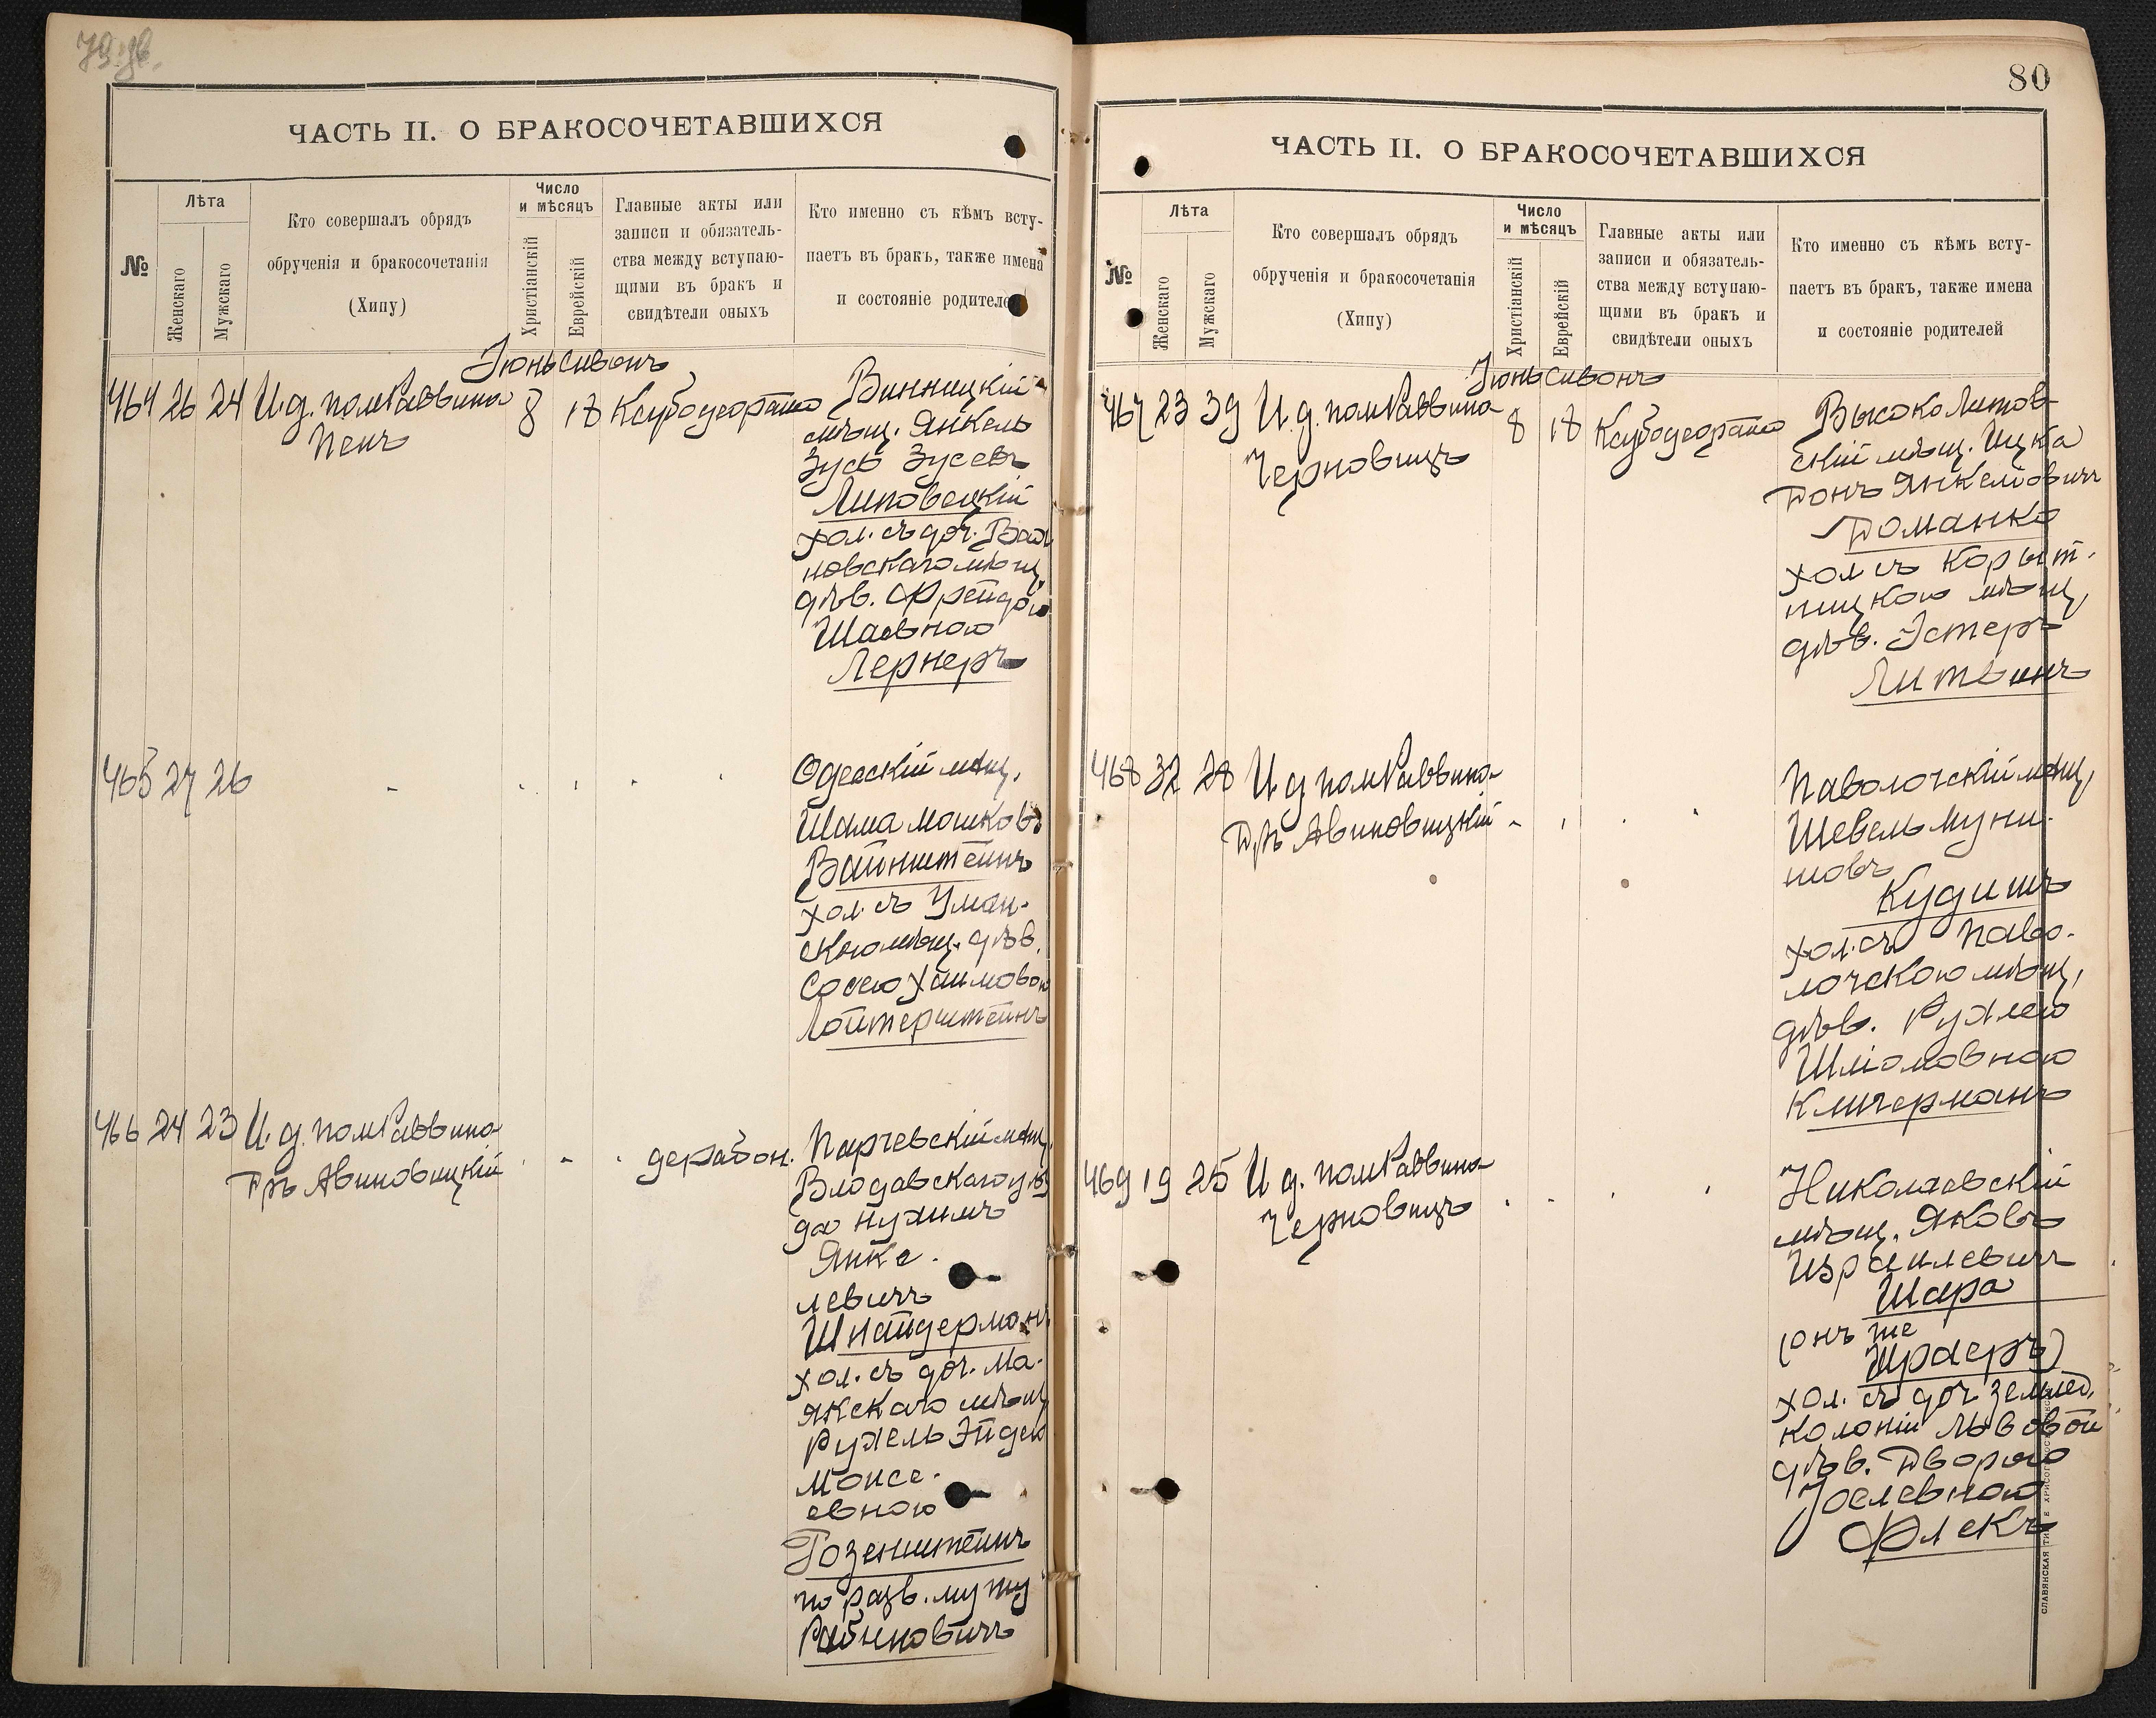 ЧАСТЬ II. О БРАКОСОЧЕТАВШИХСЯ
№
Лѣта
Женскаго
Мужскаго
Кто совершалъ обрядъ
обрученія и бракосочетанія
(Хипу)
Число
и мѣсяцъ
Христіанскій
Еврейскій
Главные акты или
записи и обязатель-
ства между вступаю-
щими въ бракъ и
свидѣтели оныхъ
Кто именно съ кѣмъ всту-
паетъ въ бракъ, также имена
и состояніе родителей
Іюнь Сивонъ
464 26 24 И.д. пом Раввина
Пенъ
8 18
Винницкій
мѣщ. Янкель
Зусь Зусевъ
Липовецкій
хол. съ доч.
новскаго мѣщ
дѣв. Фрейдою
Шаевною
Лернеръ
465 27 26
Одесскій мѣщ.
Шама Мошковъ
Вайнштейнъ
хол. съ Уман-
скою мѣщ. дѣв.
Сосею Хаимовою
Лойтерштейнъ
466 24 23 И.д. пом Раввина
Дръ Авиновицкій
Парчевскій мѣщ.
Влодавскаго уѣз
да Нухимъ
Янке-
левичъ
Шнайдерманъ
хол. съ доч. Ма-
якскаго мѣщ
Рухель Эйдею
Моисе-
евною
Розенштейнъ
по разв. мужу
Рабиновичъ
80
ЧАСТЬ II. О БРАКОСОЧЕТАВШИХСЯ
№
Лѣта
Женскаго
Мужскаго
Кто совершалъ обрядъ
обрученія и бракосочетанія
(Хипу)
Число
и мѣсяцъ
Христіанскій
Еврейскій
Главные акты или
записи и обязатель-
ства между вступаю-
щими въ бракъ и
свидѣтели оныхъ
Кто именно съ кѣмъ всту-
паетъ въ бракъ, также имена
и состояніе родителей
Іюнь Сивонъ
467 23 39 И.д. пом Раввина
Черновицъ
8 18
Высоко Литов-
скій мѣщ. Ицка
Донъ Янкелювичъ
Доманко
хол съ Корыт-
ницкою мѣщ,
дѣв. Эстеръ
Литвинъ
468 32 28 И д пом Раввина
Дръ Авиновицкій
Паволочскій мѣщ,
Шевель Муни-
шовъ
Кудишъ
хол. съ Паво-
лочскою мѣщ,
дѣв. Рухлею
Шліомовною
Кличерманъ
469 19 25 И д. пом Раввина
Черновицъ
Николаевскій
мѣщ. Яковъ
Израилевичъ
Шара
(онъ же
Шраеръ)
хол. съ доч землед,
колоніи Львовой
дѣв. Дворою
Іоселевною
Флекъ